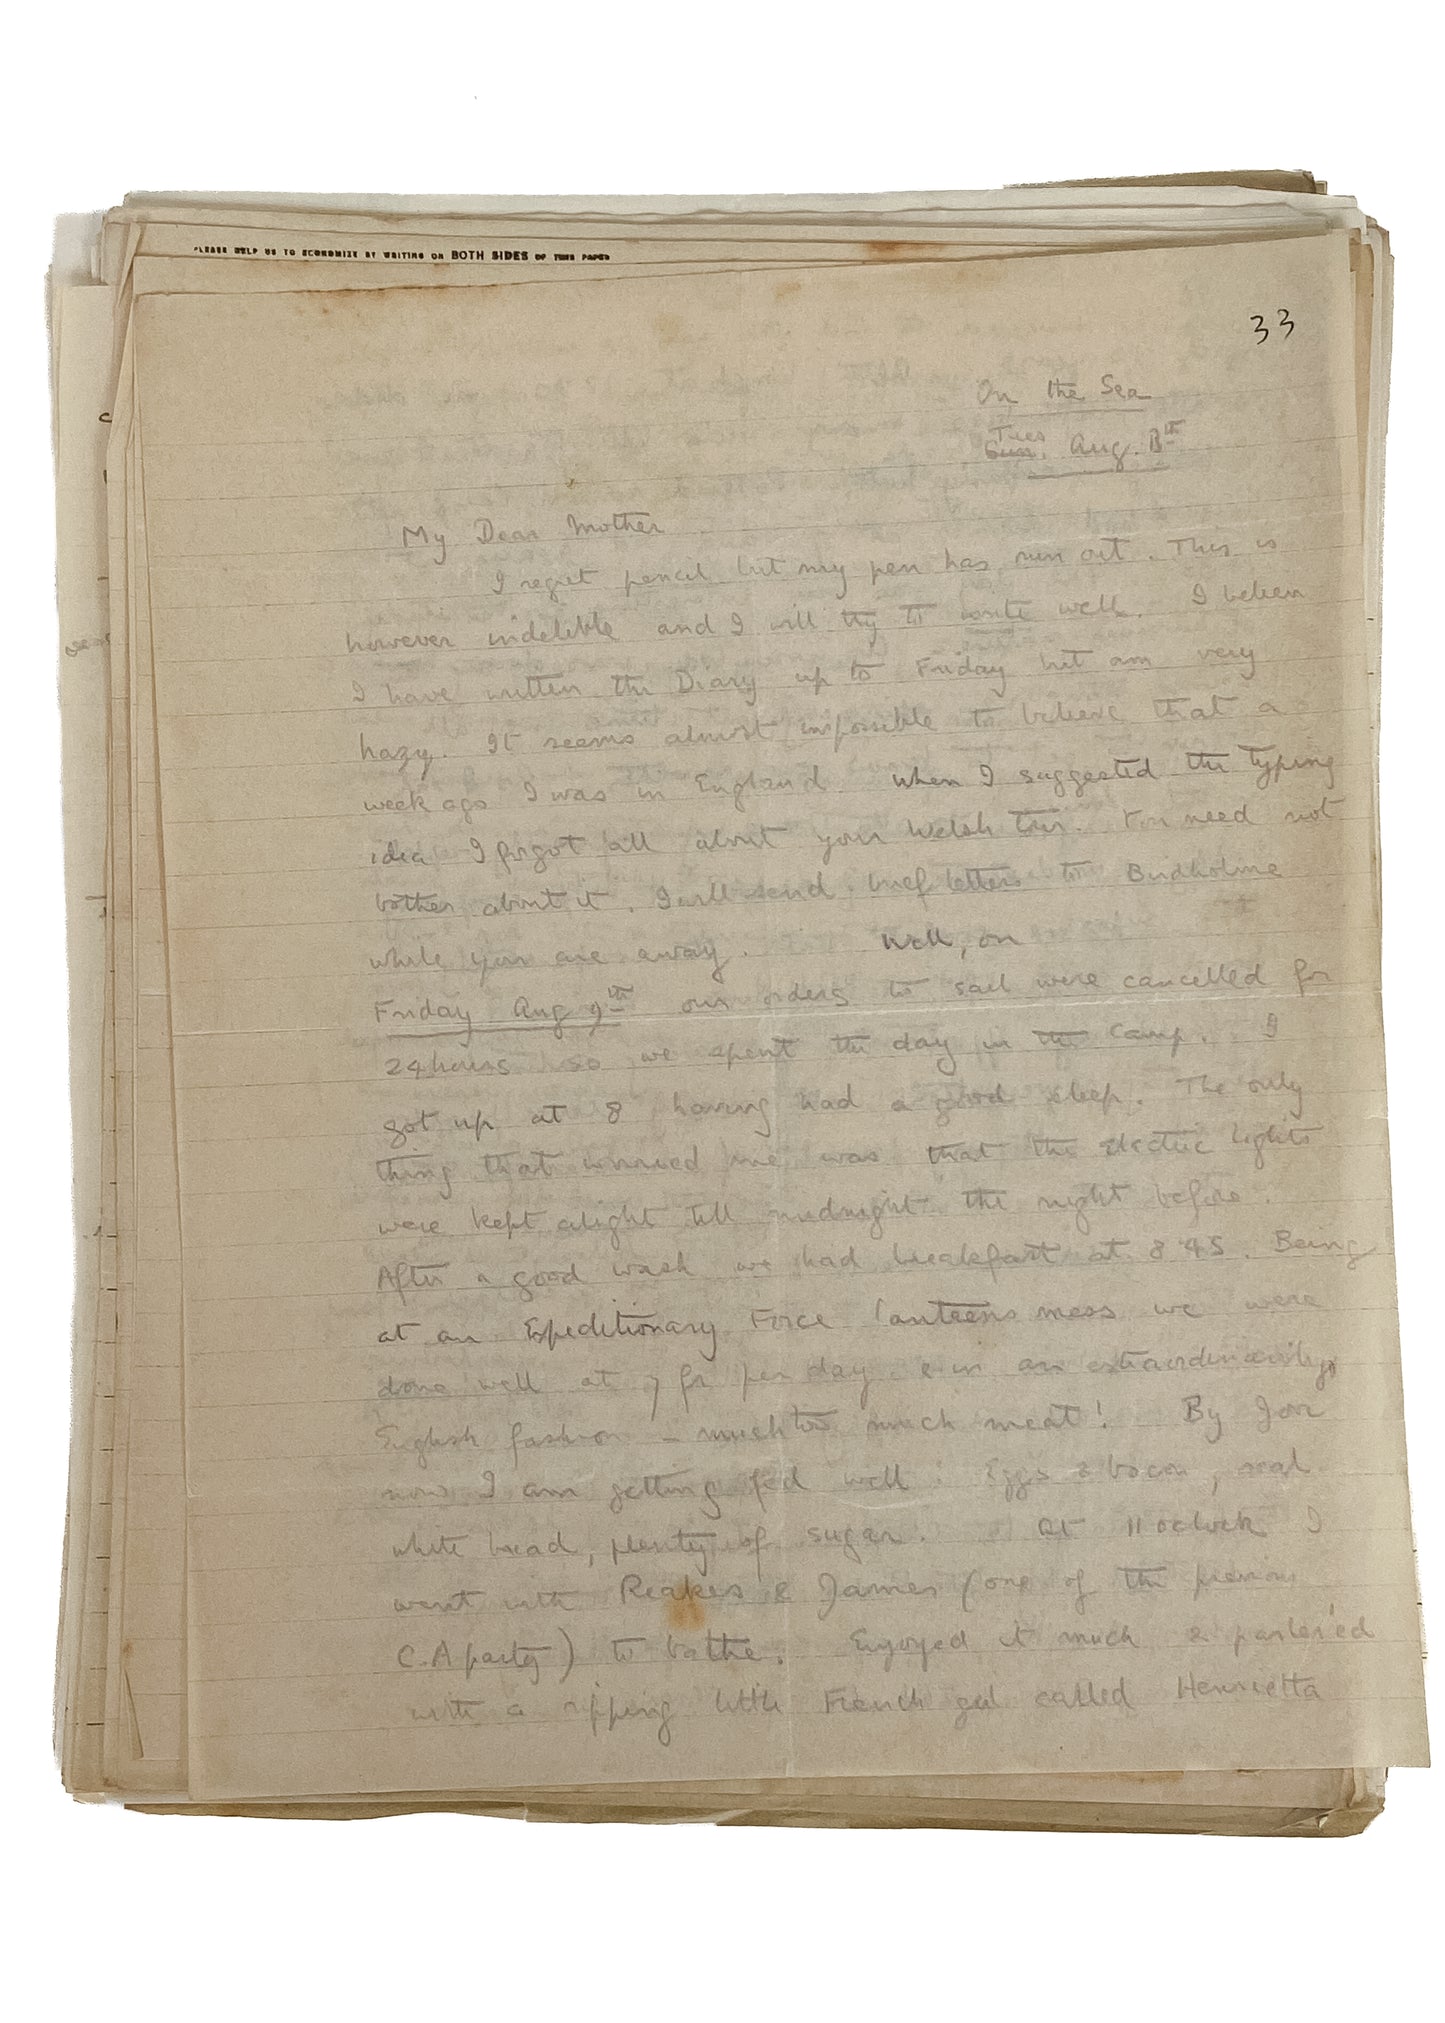 PLEASE HELP US TO ECONOMIZE BY WRITING ON BOTH SIDES OF THIS PAPER
33
On the Sea
Tues
Sun. Aug. 13th
My Dear Mother
I regret pencil but my pen has run out. This is
however indelible and I will try to write well. I believe
I have written the Diary up to Friday but am very
hazy. It seems almost impossible to believe that a
week ago I was in England. When I suggested the typing
idea I forgot all about your Welsh trip. You need not
bother about it. I will send brief letters to Birdholme
while you are away. Well, on
Friday Aug 9th our orders to sail were cancelled for
24 hours so we spent the day in the Camp. I
got up at 8 having had a good sleep. The only
thing that worried me was that the electric lights
were kept alight till midnight the night before.
After a good wash we had breakfast at 8.45. Being
at an Expeditionary Force Canteens mess we were
done well at 7 fr per day & in an extraordinarily
English fashion – much too much meat! By Jove
now I am getting fed well: Eggs & bacon, real
white bread, plenty of sugar. At 11 oclock I
went with Reakes & James (one of the previous
C.A party) to bathe. Enjoyed it much & parlez'ed
with a ripping little French girl called Henrietta